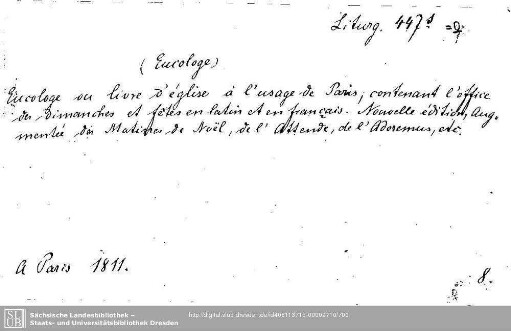 Liturg. 447d
(Eucologe)
Eucologe ou livre d'église à l'usage de Paris, contenant l'office
des Dimanches et fêtes en latin et en français. Nouvelle édition, Aug-
mentée des Matines de Noël, de l'Attende, de l'Adoremus, etc.
A Paris 1811.
8.
SLUB
Sächsische Landesbibliothek –
Staats- und Universitätsbibliothek Dresden